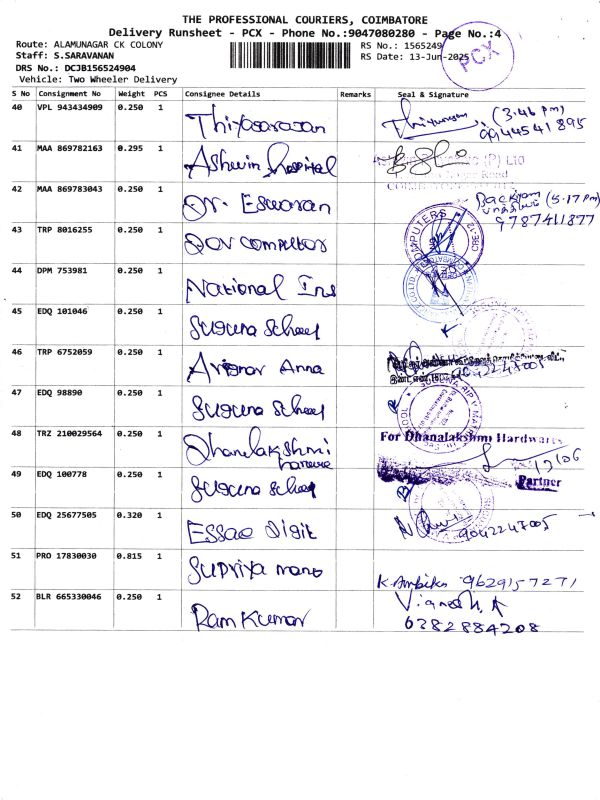 THE PROFESSIONAL COURIERS, COIMBATORE
Delivery Runsheet - PCX - Phone No.:9047080280 - Page No.:4
Route: ALAMUNAGAR CK COLONY
RS No.: 1565249
Staff: S.SARAVANAN
RS Date: 13-Jun-2025
DRS No.: DCJB156524904
Vehicle: Two Wheeler Delivery
PCX
S No Consignment No Weight PCS Consignee Details Remarks Seal & Signature
40 VPL 943434909 0.250 1 Thiyagarasan (3.46 pm)
9944541895
41 MAA 869782163 0.295 1 Ashwin hospital
(P) Ltd
42 MAA 869783043 0.250 1 Dr. Eswaran Backiyam (5.17 pm)
9787411877
43 TRP 8016255 0.250 1 Computer
COMPUTERS
44 DPM 753981 0.250 1 National Ins
45 EDQ 101046 0.250 1 Suguna School
46 TRP 6752059 0.250 1 Anna
9042247005
47 EDQ 98890 0.250 1 Suguna School
48 TRZ 210029564 0.250 1 Dhanalakshmi
For Dhanalakshmi Hardwares
Partner
49 EDQ 100778 0.250 1 Suguna School
50 EDQ 25677505 0.320 1 Essae Digit 9042247005
51 PRO 17830030 0.815 1 Supriya mano K. Ambika 9629157271
52 BLR 665330046 0.250 1 Ram Kumar Vignesh. K
6382884208